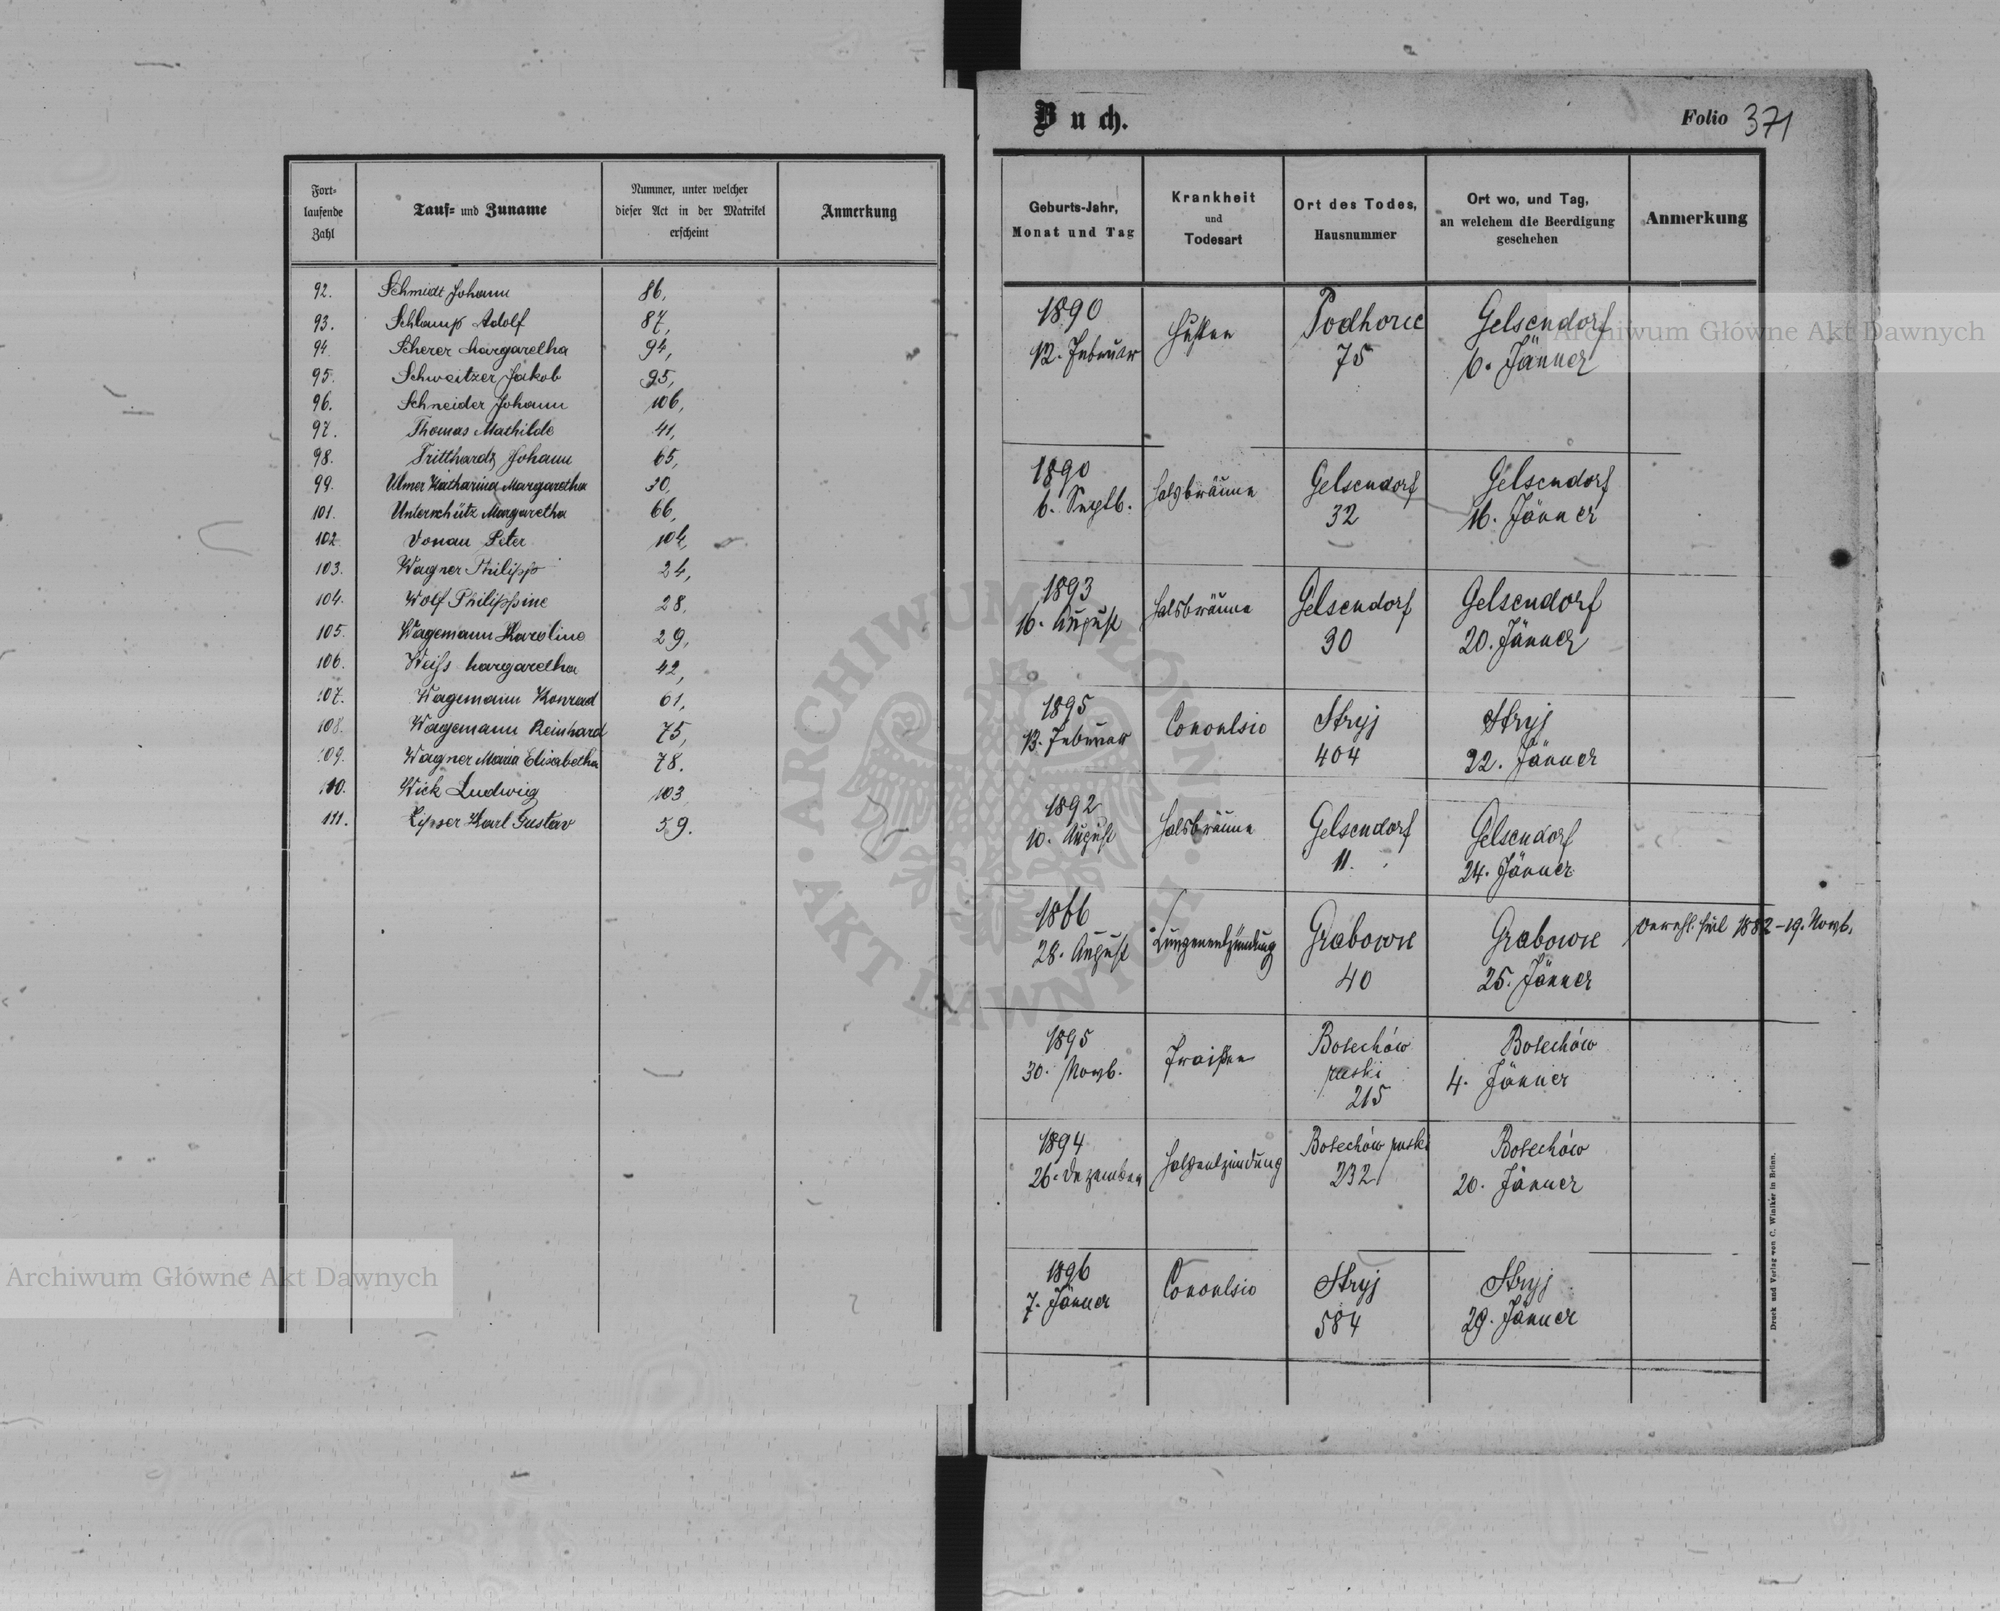 Fort-
laufende
Zahl
Tauf- und Zuname
Nummer, unter welcher
dieser Act in der Matrikel
erscheint
Anmerkung
92. Schmidt Johann 86,
93. Schlamp Adolf 87,
94 Scherer Margaretha 94,
95. Schweitzer Jakob 95,
96. Schneider Johann 106,
97. Thomas Mathilde 41,
98. Tritthardt Johann 65,
99. Ulmer Katharina Margaretha 30,
101. Unterschütz Margaretha 66,
102 Vonau Peter 104,
103. Wagner Philipp 24,
104. Wolf Philippine 28,
105. Wagemann Karoline 29,
106. Weiss Margaretha 42,
107. Wagemann Konrad 61,
108. Wagemann Reinhard 75,
109. Wagner Maria Elisabetha 78.
110. Wick Ludwig 103
111. Karl Gustav 59.
Buch.
Folio 371
Geburts-Jahr,
Monat und Tag
Krankheit
und
Todesart
Ort des Todes,
Hausnummer
Ort wo, und Tag,
an welchem die Beerdigung
geschehen
Anmerkung
1890 Husten Podhorce Gelsendorf
12. Februar 75 6. Jänner
1890 Halsbräune Gelsendorf Gelsendorf
6. Septb. 32 16. Jänner
1893 Halsbräune Gelsendorf Gelsendorf
16. August 30 20. Jänner
1895 Convulsio Stryj Stryj
13. Februar 404 22. Jänner
1892 Halsbräune Gelsendorf Gelsendorf
10. August 11. 24. Jänner
1866 Lungenentzündung Grabowie Grabowie 1882-19. Novb.
28. August 40 25. Jänner
1895 Fraisen Bolechów Bolechów
30. Novb. ruski 4. Jänner
215
1894 Halsentzündung Bolechów ruski Bolechów
26. Dezember 232 20. Jänner
1896 Convulsio Stryj Stryj
7. Jänner 584 29. Jänner
Druck und Verlag von C. Winiker in Brünn.
Archiwum Główne Akt Dawnych
Archiwum Główne Akt Dawnych
ARCHIWUM GŁÓWNE
AKT DAWNYCH